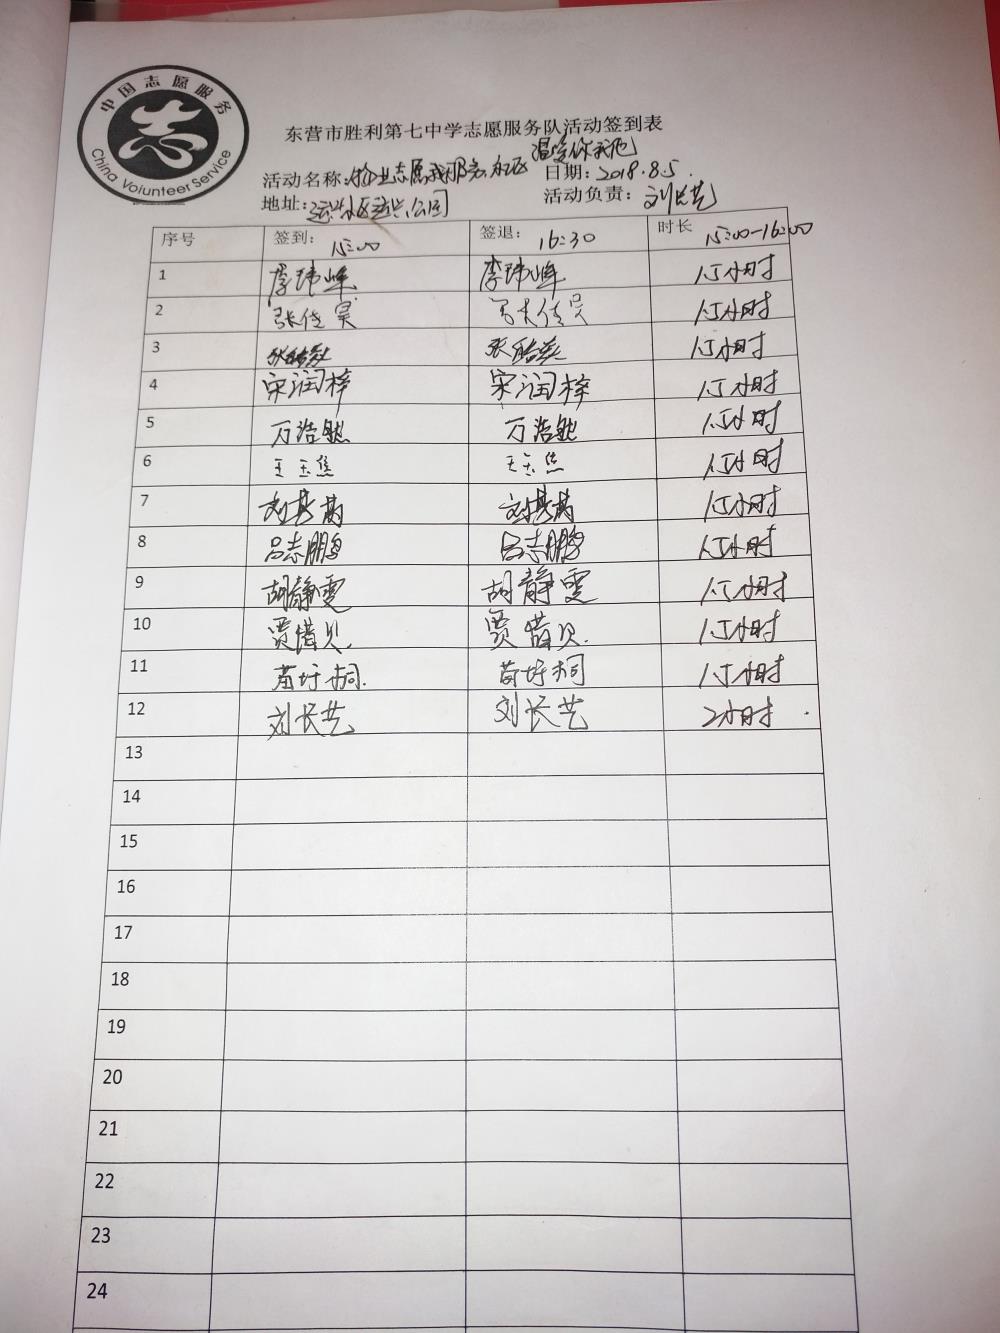 中国志愿服务
China Volunteer Service
东营市胜利第七中学志愿服务队活动签到表
温馨你我他
活动名称:物业志愿我服务 社区 日期:2018.8.5.
地址:运兴社区运兴公园 活动负责:刘长艺
序号 签到: 15:00 签退: 16:30 时长 15:00-16:00
1 李玮峰 李玮峰 1.5小时
2 张佳昊 张佳昊 1.5小时
3 张皓 张皓 1.5小时
4 宋润梓 宋润梓 1.5小时
5 万浩然 万浩然 1.5小时
6 王玉焦 王玉焦 1.5小时
7 刘 刘 1.5小时
8 吕志鹏 吕志鹏 1.5小时
9 胡静雯 胡静雯 1.5小时
10 贾惜贝 贾惜贝. 1.5小时
11 苗圩桐. 苗圩桐 1.5小时
12 刘长艺 刘长艺 2小时.
13
14
15
16
17
18
19
20
21
22
23
24